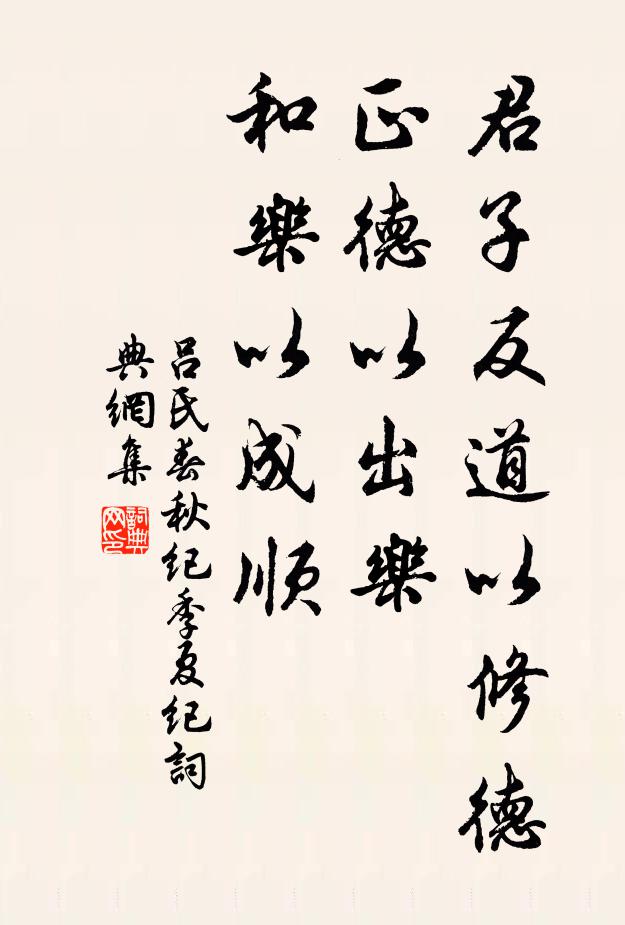 君子反道以修德
正德以出樂
和樂以成順
呂氏春秋紀季夏紀詞
典網集
詞典
网印